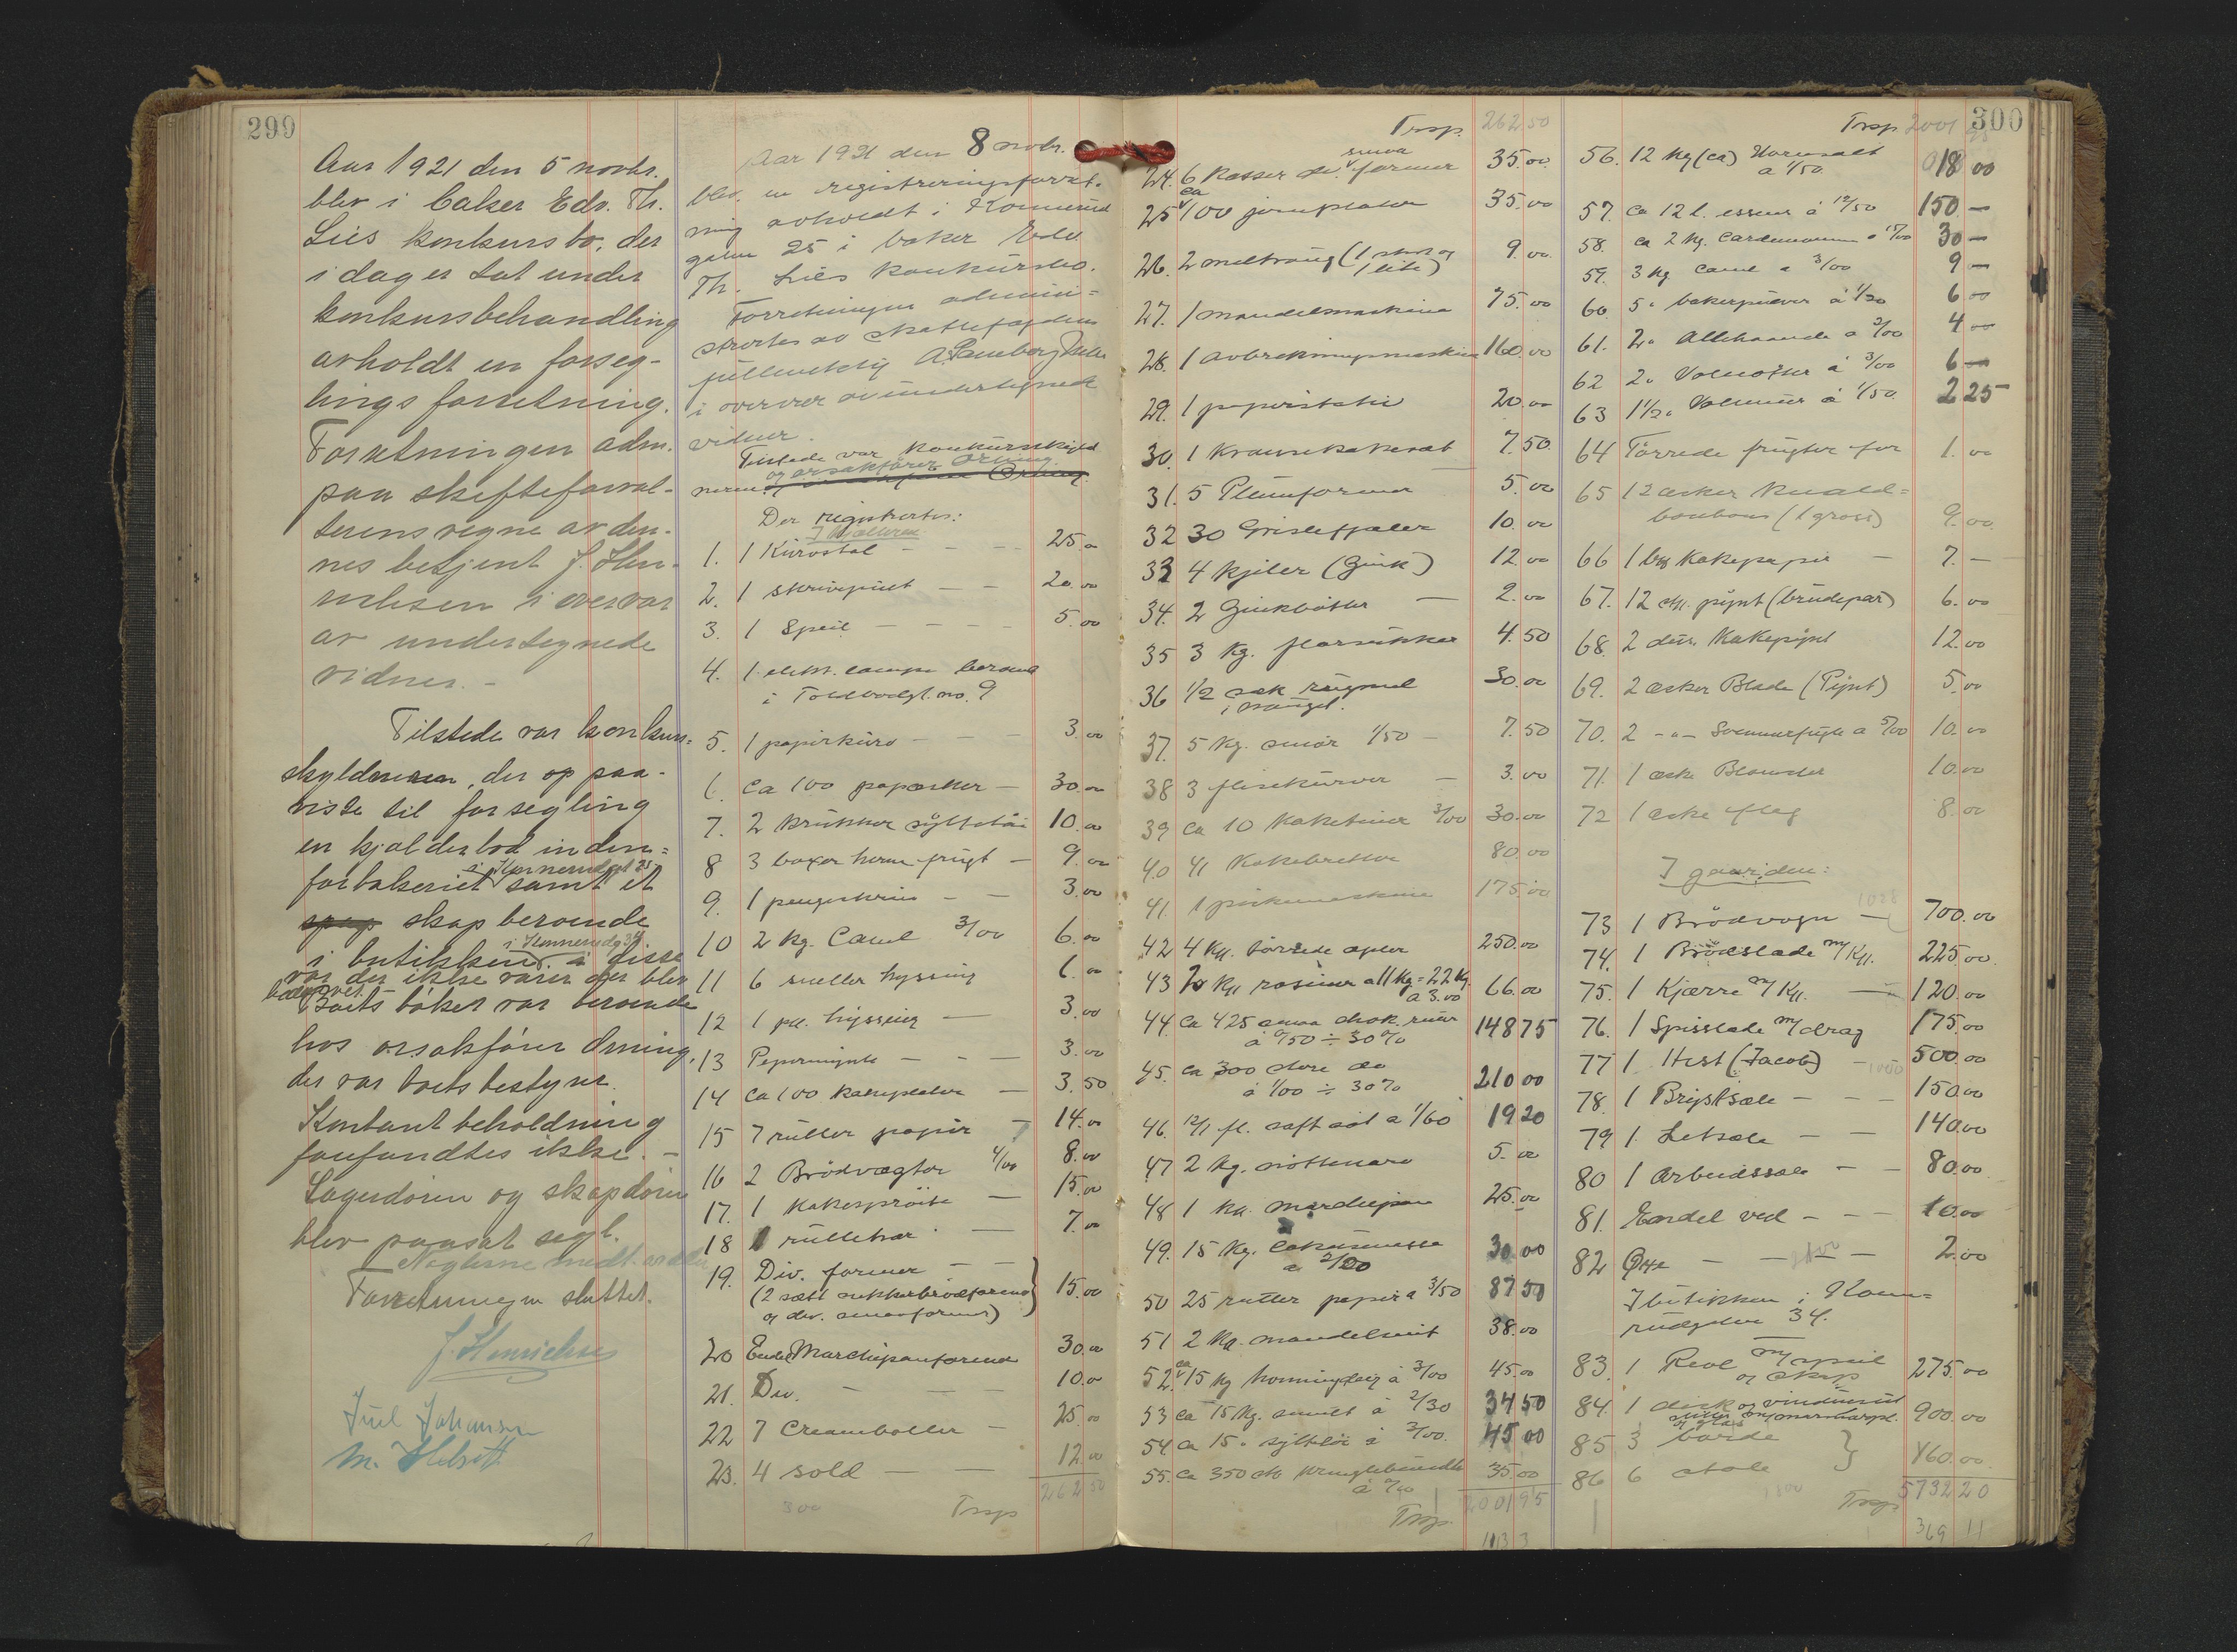 299
Aar 1921 den 5 novbr.
blev i baker Edv. Th.
Lies konkursbo, der
i dag er tat under
konkursbehandling
avholdt en forseg-
lings forretning.
Forretningen adm.
paa skifteforval-
terens vegne av den-
nes betjent J. Hen-
richsen i overvær
av undertegnede
vidner. -
Tilstede var konkurs-
skyldneren, der op paa-
viste til forsegling
en kjælderbod inden-
for bakeriet i Konnerudgt 25 samt et
skap beroende
i butikken i Konnerudg 34. i disse
var der ikke varer der blev
Boets bøker var beroende
hos orsakfører Orning,
der var boets bestyrer.
Kontant beholdning
forefandtes ikke. -
Lagerdøren og skapdøren
blev paasat segl.
Nøglerne medt.
Forretningen sluttet.
J. Henrichsen
Juel Johansen
M.
Aar 1921 den 8 novbr.
blev en registreringsforret-
ning avholdt i Konnerud
gaten 25 i baker Edv.
Th. Lies konkursbo.
Forretningen admini-
strertes av skattefogdens
fuldmektig A.
i overvær av undertegnede
vidner.
Tilstede var konkursskyld
neren og orsakfører Orning
Der registrertes:
1. 1 Kurvstol - - - 25.00
2. 1 skrivepult - - 20.00
3. 1 Speil - - - - 5.00
4. 1 elektr. lampe beroende
i Toldbodgt. no. 9
5. 1 papirkurv - - - 3.00
6. Ca 100 papæsker - 30.00
7. 2 krukker syltetøi 10.00
8 3 boxer herm frugt - 9.00
9. 1 pengeskrin - - 3.00
10 2 kg. Canel 3/00 6.00
11 6 sneller hyssing 6.00
12 1 pk. hyssing - 3.00
13 Pepermynte - - - 3.00
14 Ca 100 kakeplater - 3.50
15 7 ruller papir - 14.00
16 2 Brødvægter 4/00 8.00
17. 1 Kakesprøite - 15.00
18 1 rullebar - 7.00
19. Div. former - -
(2 sætt sukkerbrødformer
og div. smaaformer) 15.00
20 Endel Marchipanformer 30.00
21. Div. - - - 10.00
22 7 Creamboller - 25.00
23. 4 sold - - 12.00
262 50
300 Trsp
Trsp. 262 50
24. 6 Kasser div. smaa former 35.00
25 ca 100 jernplater 35.00
26. 2 meltraug (1 stort og
1 lite) 9.00
27. 1 mandelmaskine 75.00
28. 1 avbrekningsmaskine 160.00
29. 1 papirstativ 20.00
30. 1 Kransekakesæt 7.50
31. 5 Plumformer 5.00
32 30 Grislefjæler 10.00
33 4 kjeler (Zink) 12.00
34. 2 Zinkbøtter - 2.00
35 3 Kg. florsukker 4.50
36 1/2 sæk rugmel 30.00
37. 5 Kg. smør 1/50 - 7.50
38 3 flisekurver - 3.00
39 Ca 10 Kaketiner 3/00 30.00
40 41 Kakebretter 80.00
41. 1 piskemaskine 175.00
42 4 Ks. tørrede epler 250.00
43 2 Ks rosiner a 11 Kg = 22 Kg.
a 3.00 66.00
44. Ca 425 smaa chok.
à 0/50 ÷ 30% 148 75
45. Ca 300 store do
à 1/00 ÷ 30% 210 00
46. 12/1 fl. saft søt a 1/60 19 20
47 2 Kg. nøttemarv 5.00
48 1 ka. marchipan 25.00
49. 15 Kg. cokusmasse
a 2/00 30.00
50 25 ruller papir a 3/50 87 50
51 2 Ka. mandelsmit 38.00
52. ca 15 Kg honningdeig à 3/00 45.00
53 Ca 15 Kg. smult à 2/30 34 50
54 Ca 15 " syltetøi à 3/00. 45 00
55. Ca 350
35.00
2001 95
Trsp.
300
Trsp 2001
56. 12 Kg (ca) Hornsalt
a 1/50. 18 00
57. Ca 12 l. essens à 12/50 150 -
58. Ca 2 Kg. Cardemomme a 15/00 30 -
59. 3 Kg Canel a 3/00 9 -
60. 5 " bakerpulver à 1/20 6 00
61. 2 " Allehaande a 2/00 4 00
62 2 " Valnøtter à 3/00 6 -
63 1 1/2 " Valmue à 1/50. 2 25
64 Tørrede frugter for 1.00
65 12 æsker Knald-
bonbons (1 gross) 9.00
66 1 Kakepapir - 7. -
67. 12 stk. pynt (brudepar) 6.00
68. 2 dus. Kakepynt 12.00
69. 2 æsker Blade (Pynt) 5.00
70. 2 - " - Sommerfugle a 5/00 10.00
71. 1 æske Blomster 10.00
72 1 æske flag 8.00
I gaarden:
73 1 Brødvogn - 700.00
74. 1 Brødslæde m/Ks. 225.00
75. 1 Kjærre m/Ks. - 120.00
76. 1 Spisslæde m/drag 175.00
77 1 Hest (Jacob) - 500.00
78. 1 Brystsæle - - 150.00
79 1 Letsæle - - 140.00
80 1 Arbeidssæle - - 80.00
81. Endel ved - - - 10.00
82 Øxe - - - 2.00
I butikken i Kon-
rudgaten 34.
83. 1 Reol m/speil
og skap 275.00
84. 1 disk og
900.00
85 3 borde
86 6 stole 160.00
Trsp. 5732 20
369 11